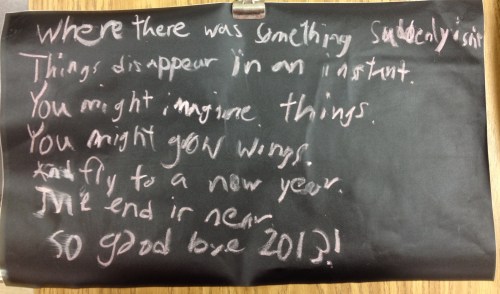 Where there was something suddenly isnt
Things disappear in an instant.
You might imagine things.
You might grow wings.
And fly to a new year.
The end is near
so good bye 2013!